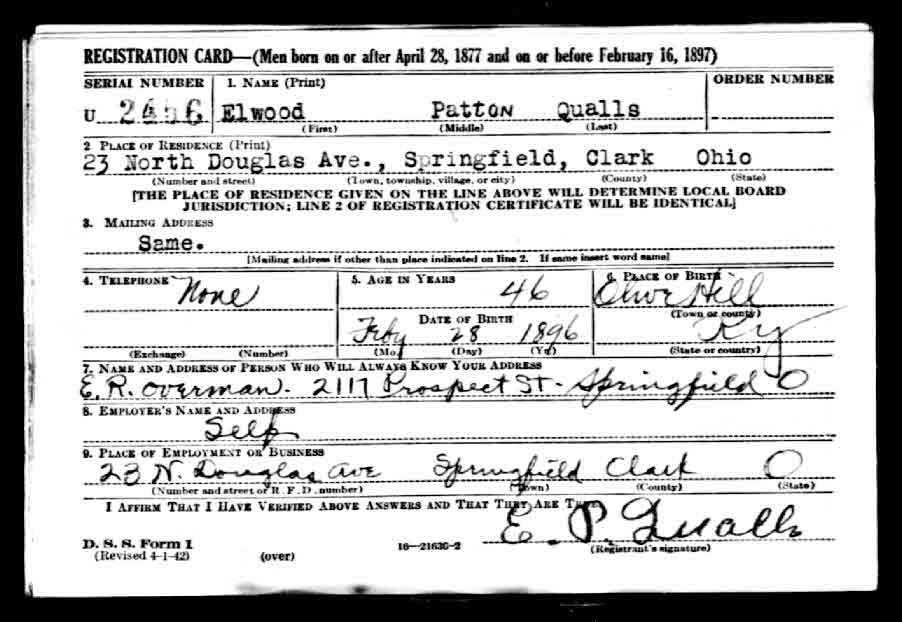 REGISTRATION CARD—(Men born on or after April 28, 1877 and on or before February 16, 1897)
SERIAL NUMBER 1. NAME (Print) ORDER NUMBER
U Elwood Patton Qualls
(First) (Middle) (Last)
2 PLACE OF RESIDENCE (Print)
23 North Douglas Ave., Springfield, Clark Ohio
(Number and street) (Town, township, village, or city) (County) (State)
[THE PLACE OF RESIDENCE GIVEN ON THE LINE ABOVE WILL DETERMINE LOCAL BOARD
JURISDICTION; LINE 2 OF REGISTRATION CERTIFICATE WILL BE IDENTICAL]
3. MAILING ADDRESS
Same.
[Mailing address if other than place indicated on line 2. If same insert word same]
4. TELEPHONE 5. AGE IN YEARS 6. PLACE OF BIRTH
None 46 Olive Hill
DATE OF BIRTH (Town or county)
Feby 28 1896 Ky
(Exchange) (Number) (Mo.) (Day) (Yr.) (State or country)
7. NAME AND ADDRESS OF PERSON WHO WILL ALWAYS KNOW YOUR ADDRESS
E. R. Overman - 2117 Prospect St - Springfield O
8. EMPLOYER'S NAME AND ADDRESS
Self
9. PLACE OF EMPLOYMENT OR BUSINESS
23 N. Douglas Ave Springfield Clark O
(Number and street or R. F. D. number) (Town) (County) (State)
I AFFIRM THAT I HAVE VERIFIED ABOVE ANSWERS AND THAT THEY ARE TRUE.
E. P. Qualls
D. S. S. Form 1 16—21630-2 (Registrant's signature)
(Revised 4-1-42) (over)